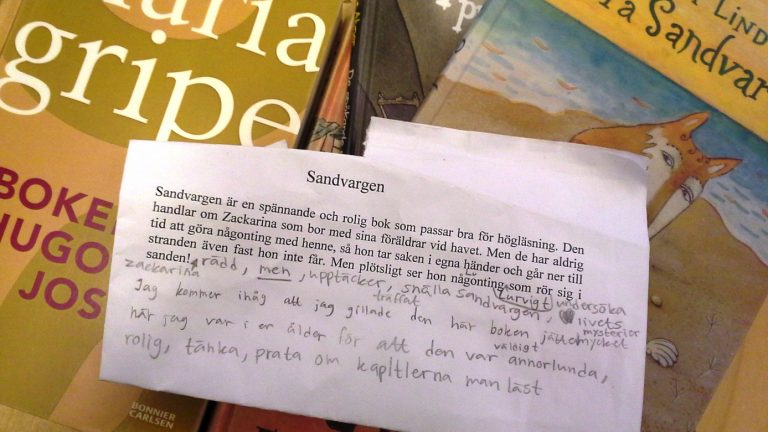 aria
gripe
BOKEN
HUGO
JOS
BONNIER
CARLSEN
LIND
a Sandvar
Sandvargen
Sandvargen är en spännande och rolig bok som passar bra för högläsning. Den
handlar om Zackarina som bor med sina föräldrar vid havet. Men de har aldrig
tid att göra någonting med henne, så hon tar saken i egna händer och går ner till
stranden även fast hon inte får. Men plötsligt ser hon någonting som rör sig i
sanden! rädd, men, upptäcker, snälla Sandvargen, lurvigt undersöka
zackarina träffat livets mysterier
Jag kommer ihåg att jag gillade den här boken jättemycket
när jag var i er ålder för att den var annorlunda,
rolig, tänka, prata om kapitlerna man läst
väldigt